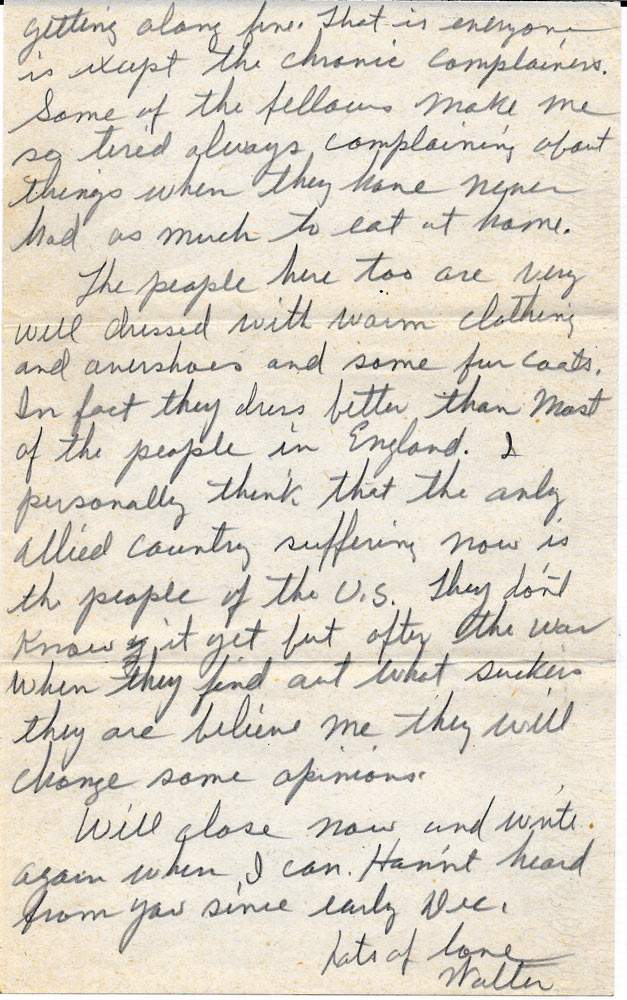 getting along fine. That is everyone
is except the chronic complainers.
Some of the fellows make me
so tired always complaining about
things when they have never
had as much to eat at home.
The people here too are very
well dressed with warm clothing
and overshoes and some fur coats.
In fact they dress better than most
of the people in England. I
personally think that the only
allied country suffering now is
the people of the U.S. They don't
know it yet but after the war
when they find out what suckers
they are believe me they will
change some opinions.
Will close now and write
again when I can. Haven't heard
from you since early Dec.
Lots of love
Walter